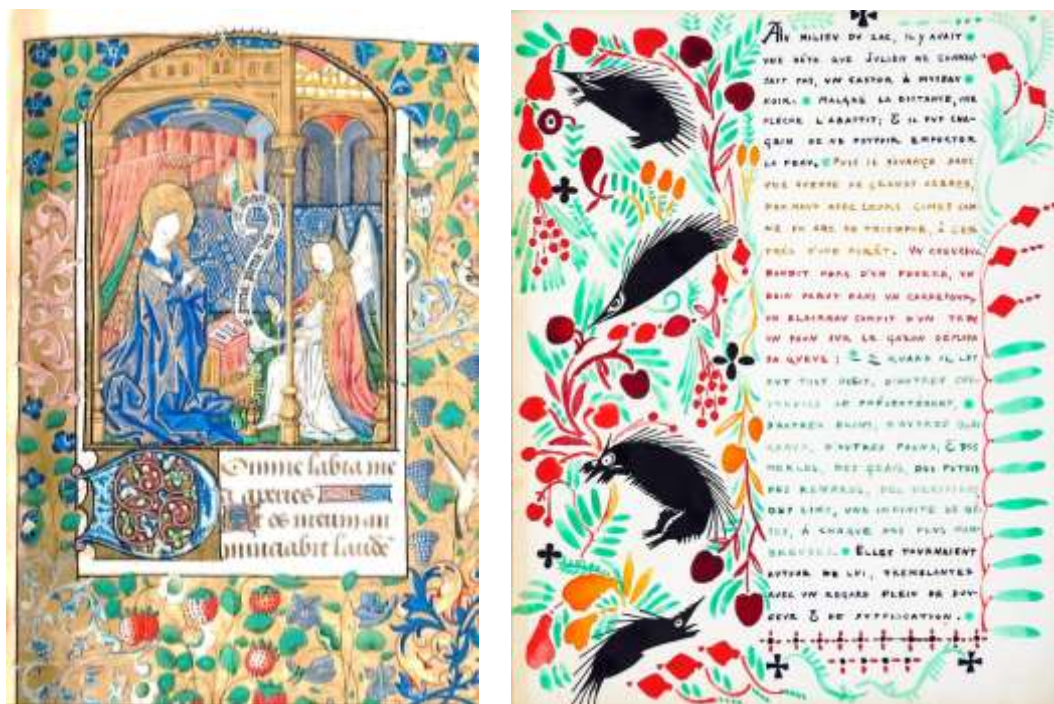 Domine labia me
a aperies
Et os meum an
nunciabit laudē
AU MILIEU DU LAC, IL Y AVAIT
UNE BÊTE QUE JULIEN NE CONNAIS
SAIT PAS, UN CASTOR À MUSEAU
NOIR. MALGRÉ LA DISTANCE, UNE
FLÈCHE L'ABATTIT; & IL FUT CHA-
GRIN DE NE POUVOIR EMPORTER
LA PEAU. PUIS IL S'AVANÇA DANS
UNE AVENUE DE GRANDS ARBRES,
FORMANT AVEC LEURS CIMES COM
ME UN ARC DE TRIOMPHE, À L'EN
TRÉE D'UNE FORÊT. UN CHEVREUIL
BONDIT HORS D'UN FOURRÉ, UN
DAIM PARUT DANS UN CARREFOUR,
UN BLAIREAU SORTIT D'UN TROU
UN PAON SUR LE GAZON DÉPLOYA
SA QUEUE; QUAND IL LES
EUT TOUS OCCIS, D'AUTRES CHE-
VREUILS SE PRÉSENTÈRENT,
D'AUTRES DAIMS, D'AUTRES BLAI
REAUX, D'AUTRES PAONS, & DES
MERLES, DES GEAIS, DES PUTOIS
DES RENARDS, DES HÉRISSONS
DES LYNX, UNE INFINITÉ DE BÊ-
TES, À CHAQUE PAS PLUS NOM-
BREUSES. ELLES TOURNAIENT
AUTOUR DE LUI, TREMBLANTES
AVEC UN REGARD PLEIN DE DOU-
CEUR & DE SUPPLICATION.